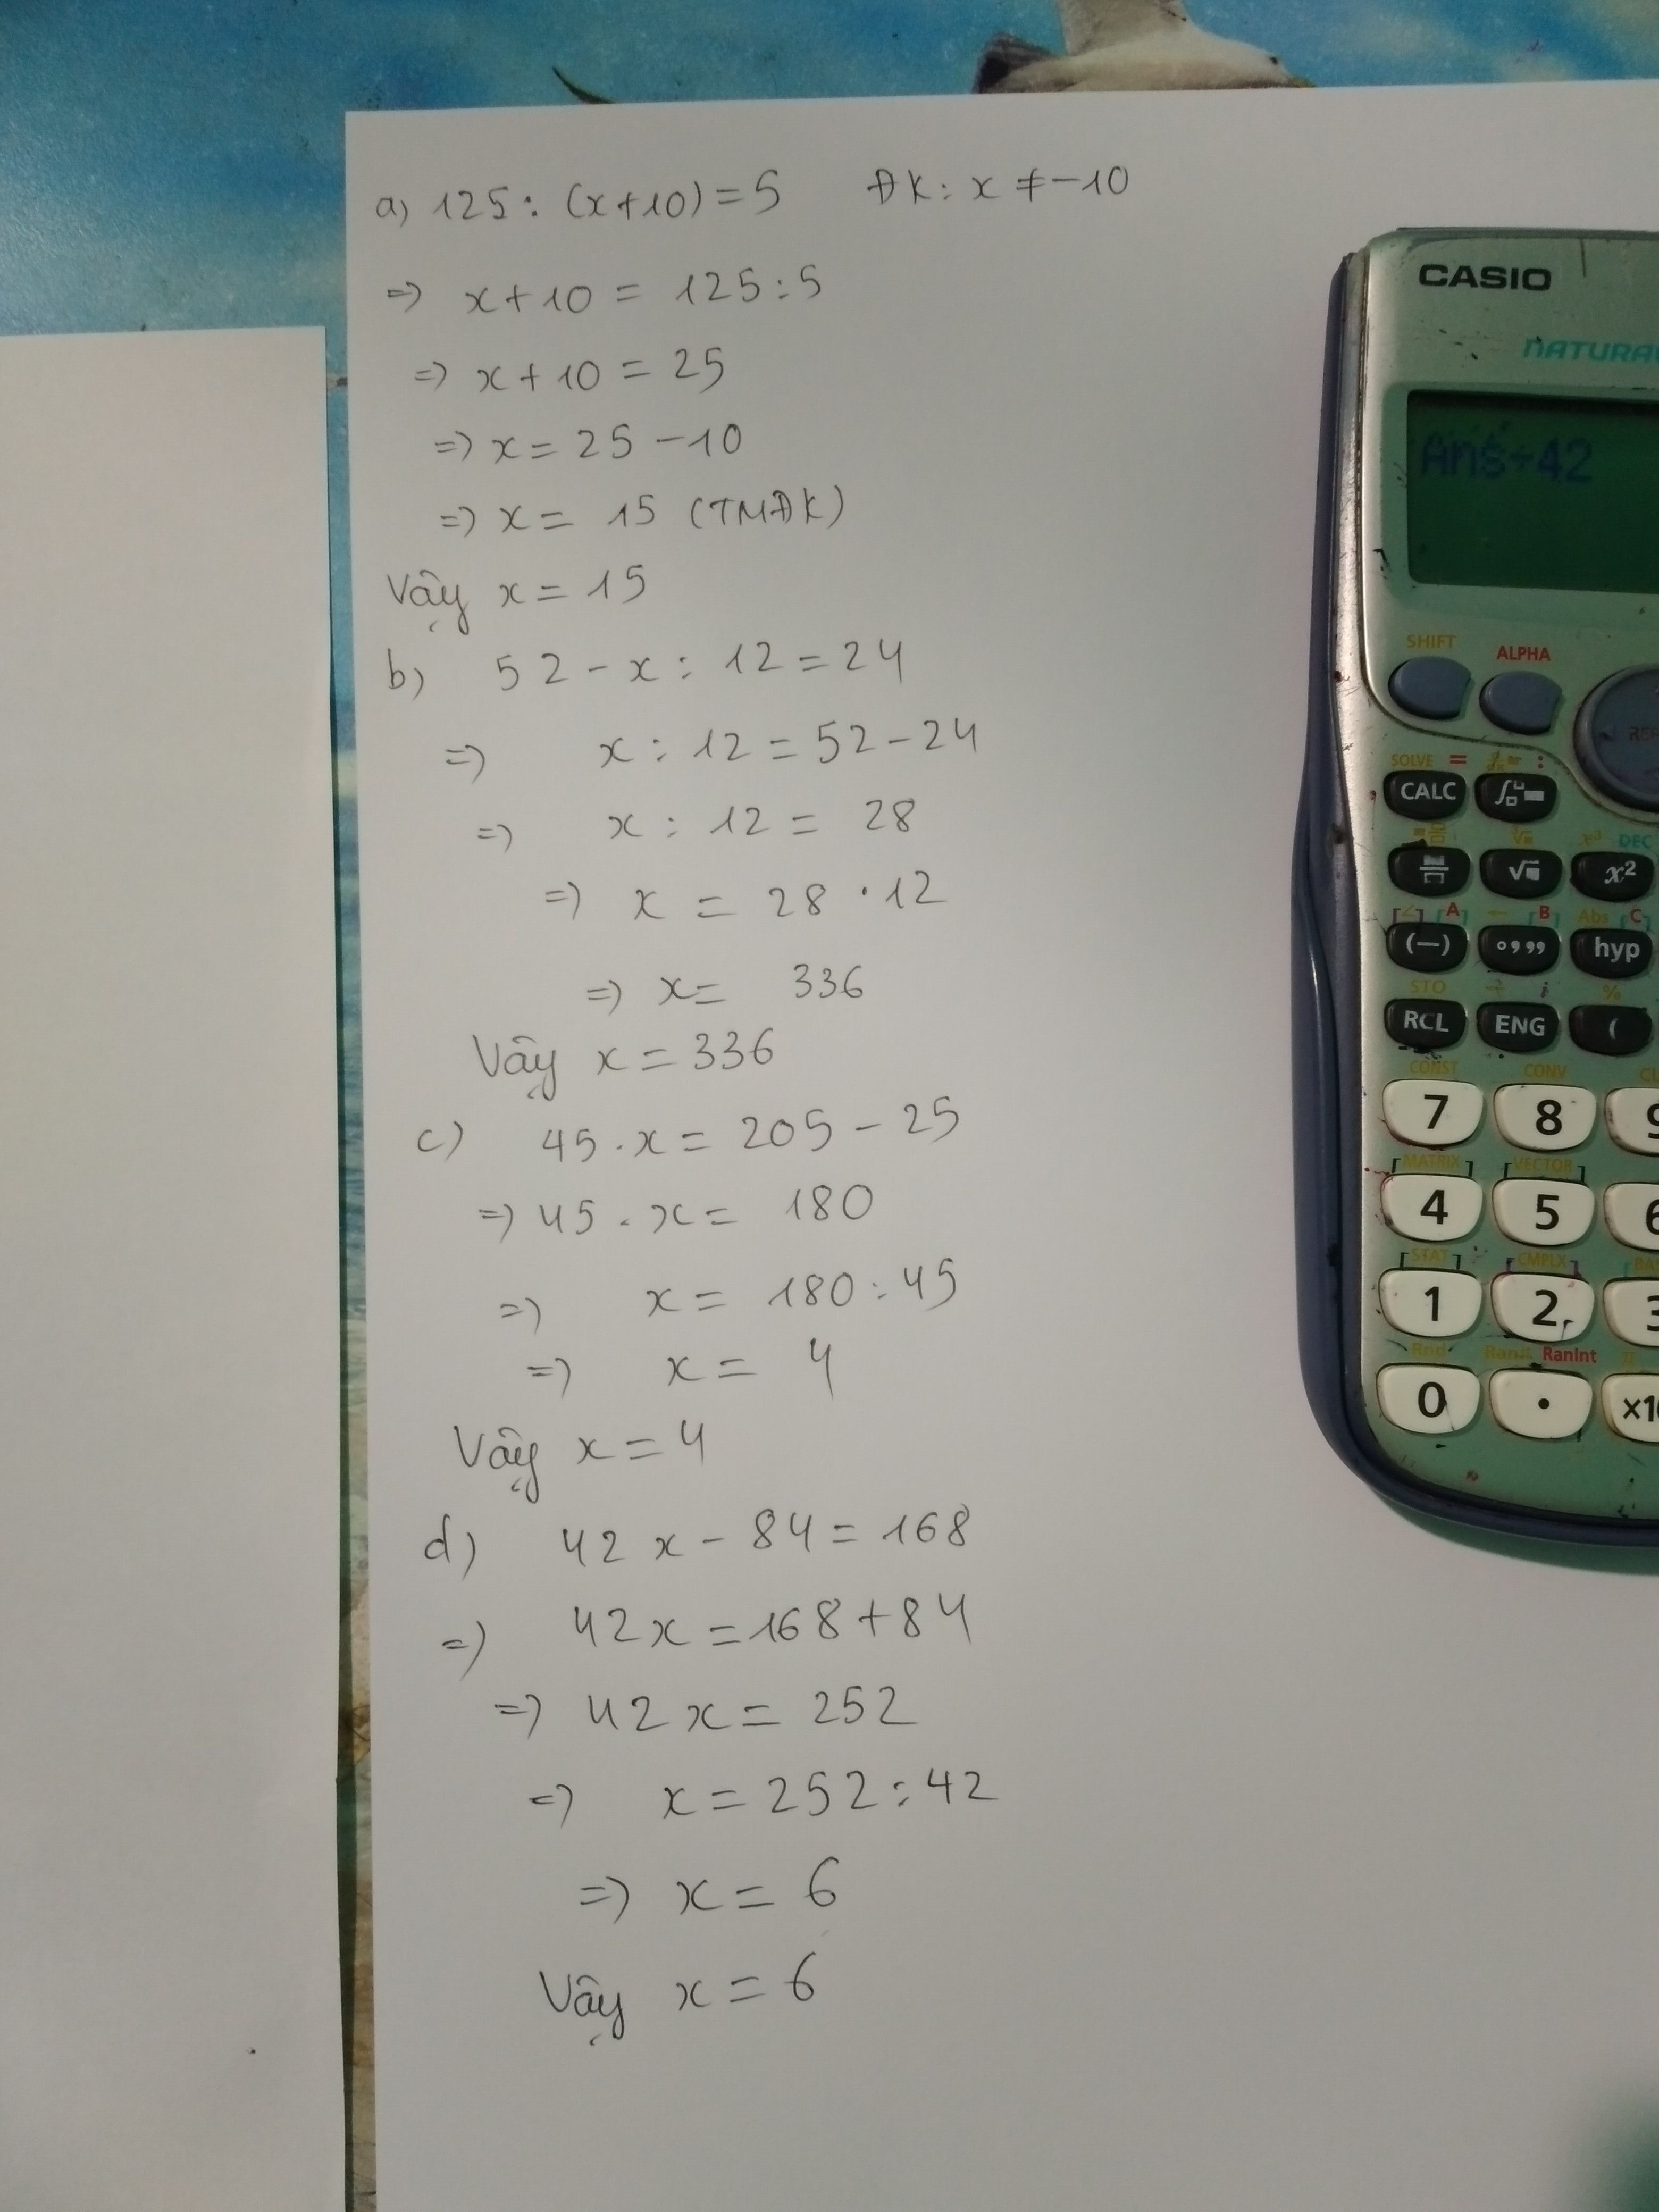 a) 125 : (x+10) = 5 ĐK: x ≠ -10
=> x + 10 = 125 : 5
=> x + 10 = 25
=> x = 25 - 10
=> x = 15 (TMĐK)
Vậy x = 15
b) 52 - x : 12 = 24
=> x : 12 = 52 - 24
=> x : 12 = 28
=> x = 28 . 12
=> x = 336
Vậy x = 336
c) 45 . x = 205 - 25
=> 45 . x = 180
=> x = 180 : 45
=> x = 4
Vậy x = 4
d) 42 x - 84 = 168
=> 42x = 168 + 84
=> 42x = 252
=> x = 252 : 42
=> x = 6
Vậy x = 6
CASIO
Ans÷42
SHIFT ALPHA
SOLVE = :
CALC
√■ x² DEC
A B Abs C
(−) °,,, hyp
STO i %
RCL ENG (
CONST CONV
7 8
MATRIX VECTOR
4 5 6
STAT CMPLX
1 2 3
Rnd Ran# RanInt
0 .